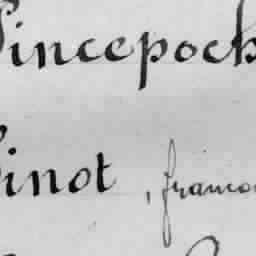 Pincepock
Pinot, franco